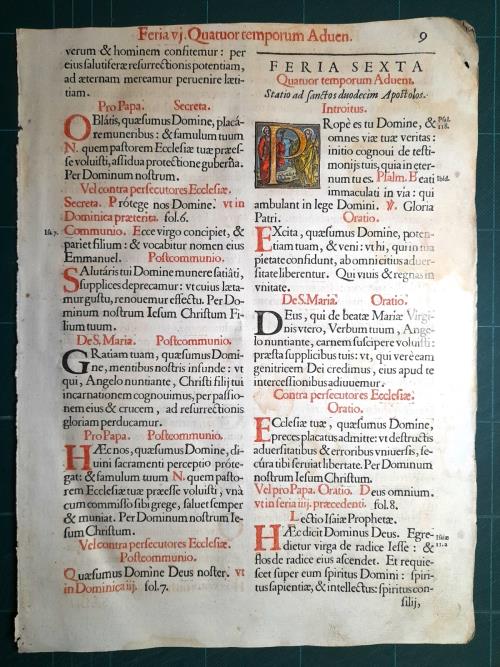 Feria vj. Quatuor temporum Aduen. 9
verum & hominem confitemur: per
eius salutiferæ resurrectionis potentiam,
ad æternam mereamur peruenire læti-
tiam.
Pro Papa. Secreta.
OBlátis, quæsumus Domine, placá-
re muneribus: & famulum tuum
N. quem pastorem Ecclesiæ tuæ præes-
se voluisti, assidua protectione guberna.
Per Dominum nostrum.
Vel contra persecutores Ecclesiæ.
Secreta. Prótege nos Domine. vt in
Dominica præterita. fol. 6.
Isa. 7. Communio. Ecce virgo concipiet, &
pariet filium: & vocabitur nomen eius
Emmanuel. Postcommunio.
SAlutáris tui Domine munere satiáti,
supplices deprecamur: vt cuius læta-
mur gustu, renouemur effectu. Per Do-
minum nostrum Iesum Christum Fi-
lium tuum.
De S. Maria. Postcommunio.
GRatiam tuam, quæsumus Domi-
ne, mentibus nostris infunde: vt
qui, Angelo nuntiante, Christi filij tui
incarnationem cognouimus, per passio-
nem eius & crucem, ad resurrectionis
gloriam perducamur.
Pro Papa. Postcommunio.
HÆc nos, quæsumus Domine, di-
uini sacramenti perceptio próte-
gat: & famulum tuum N. quem pasto-
rem Ecclesiæ tuæ præesse voluisti, vnà
cum commisso sibi grege, saluet semper
& muniat. Per Dominum nostrum Ie-
sum Christum.
Vel contra persecutores Ecclesiæ.
Postcommunio.
Quæsumus Domine Deus noster. vt
in Dominica iij. fol. 7.
FERIA SEXTA
Quatuor temporum Aduent.
Statio ad sanctos duodecim Apostolos.
Introitus.
PRope es tu Domine, & Psal. 118.
omnes viæ tuæ veritas:
initio cognoui de testi-
monijs tuis, quia in eter-
num tu es. Psalm. Beati Ibid.
immaculati in via: qui
ambulant in lege Domini. ℣. Gloria
Patri. Oratio.
EXcita, quæsumus Domine, poten-
tiam tuam, & veni: vt hi, qui in tua
pietate confidunt, ab omni citius aduer-
sitate liberentur. Qui viuis & regnas in
vnitate.
De S. Maria. Oratio.
DEus, qui de beatæ Mariæ Virgi-
nis vtero, Verbum tuum, Ange-
lo nuntiante, carnem suscipere voluisti:
præsta supplicibus tuis: vt, qui verè eam
genitricem Dei credimus, eius apud te
intercessionibus adiuuemur.
Contra persecutores Ecclesiæ.
Oratio.
ECclesiæ tuæ, quæsumus Domine,
preces placatus admitte: vt destructis
aduersitatibus & erroribus vniuersis, se-
cura tibi seruiat libertate. Per Dominum
nostrum Iesum Christum.
Vel pro Papa. Oratio. Deus omnium.
vt in feria iiij. præcedenti. fol. 8.
Lectio Isaiæ Prophetæ.
HÆc dicit Dominus Deus. Egre- Isaiæ
dietur virga de radice Iesse: & 11.a
flos de radice eius ascendet. Et requie-
scet super eum spiritus Domini: spiri-
tus sapientiæ, & intellectus: spiritus con-
silij,